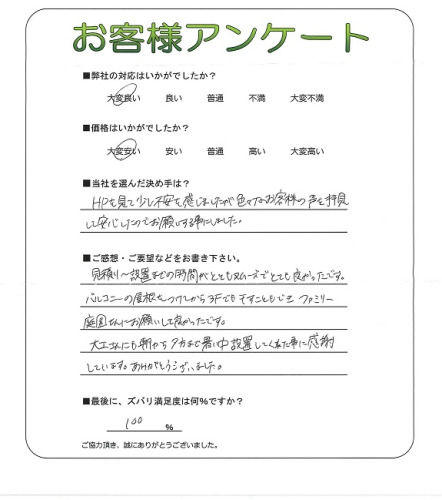 お客様アンケート
■弊社の対応はいかがでしたか？
大変良い 良い 普通 不満 大変不満
■価格はいかがでしたか？
大変安い 安い 普通 高い 大変高い
■当社を選んだ決め手は？
HPを見て少し不安を感じましたが色々なお客様の声を拝見
して安心したのでお願いする事にしました。
■ご感想・ご要望などをお書き下さい。
見積り〜設置までの時間がとてもスムーズでとても良かったです。
バルコニーの屋根をつけてから3Fでも干すこともでき ファミリー
庭園さんにお願いして良かったです。
大工さんにも朝から夕方まで暑い中設置してくれた事に感謝
しています。ありがとうございました。
■最後に、ズバリ満足度は何%ですか？
100 %
ご協力頂き、誠にありがとうございました。